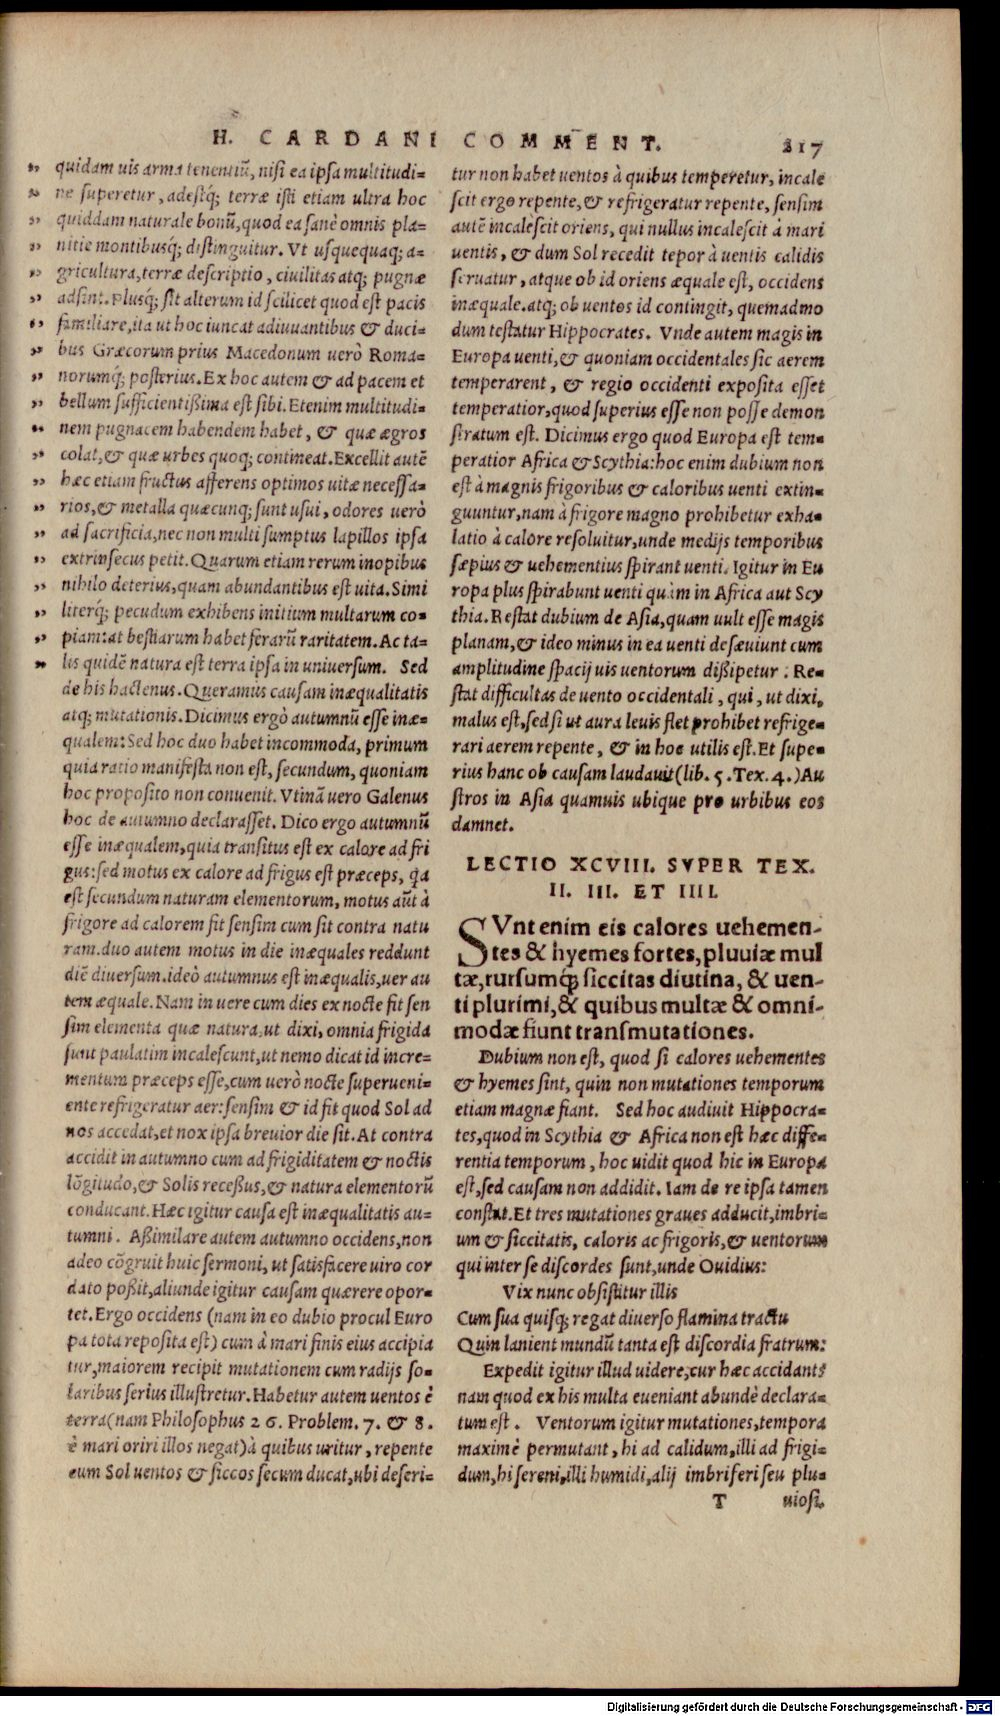 H. CARDANI COMMENT. 217
quidam uis arma tenentiũ, nisi ea ipsa multitudi=
ne superetur, adestq́; terræ isti etiam ultra hoc
quiddam naturale bonũ, quod ea sanè omnis pla=
nitie montibusq́; distinguitur. Vt usquequaq; a=
gricultura, terræ descriptio, ciuilitas atq; pugnæ
adsint. Plusq́; sit alterum id scilicet quod est pacis
familiare, ita ut hoc iuncat adiuuantibus & duci=
bus Græcorum prius Macedonum uerò Roma=
norumq́; posterius. Ex hoc autem & ad pacem et
bellum sufficientißima est sibi. Etenim multitudi=
nem pugnacem habendem habet, & quæ agros
colat, & quæ urbes quoq; contineat. Excellit autẽ
hæc etiam fructus afferens optimos uitæ necessa=
rios, & metalla quæcunq; sunt usui, odores uerò
ad sacrificia, nec non multi sumptus lapillos ipsa
extrinsecus petit. Quarum etiam rerum inopibus
nihilo deterius, quam abundantibus est uita. Simi
literq́; pecudum exhibens initium multarum co=
piam: at bestiarum habet ferarũ raritatem. Ac ta=
lis quidẽ natura est terra ipsa in uniuersum. Sed
de his hactenus. Queramus causam inæqualitatis
atq; mutationis. Dicimus ergò autumnũ esse inæ=
qualem: Sed hoc duo habet incommoda, primum
quia ratio manifesta non est, secundum, quoniam
hoc proposito non conuenit. Vtinã uero Galenus
hoc de autumno declarasset. Dico ergo autumnũ
esse inæqualem, quia transitus est ex calore ad fri
gus: sed motus ex calore ad frigus est præceps, q̃a
est secundum naturam elementorum, motus aũt à
frigore ad calorem fit sensim cum sit contra natu
ram. duo autem motus in die inæquales reddunt
diẽ diuersum. ideò autumnus est inæqualis, uer au
tem æquale. Nam in uere cum dies ex nocte fit sen
sim elementa quæ natura, ut dixi, omnia frigida
sunt paulatim incalescunt, ut nemo dicat id incre=
mentum præceps esse, cum uerò nocte superueni=
ente refrigeratur aer: sensim & id fit quod Sol ad
nos accedat, et nox ipsa breuior die sit. At contra
accidit in autumno cum ad frigiditatem & noctis
lõgitudo, & Solis receßus, & natura elementorũ
conducant. Hæc igitur causa est inæqualitatis au=
tumni. Aßimilare autem autumno occidens, non
adeo cõgruit huic sermoni, ut satisfacere uiro cor
dato poßit, aliunde igitur causam quærere opor=
tet. Ergo occidens (nam in eo dubio procul Euro
pa tota reposita est) cum à mari finis eius accipia
tur, maiorem recipit mutationem cum radijs so=
laribus serius illustretur. Habetur autem uentos è
terra (nam Philosophus 26. Problem. 7. & 8.
è mari oriri illos negat) à quibus uritur, repente
cum Sol uentos & siccos secum ducat, ubi deseri=
tur non habet uentos à quibus temperetur, incale
scit ergo repente, & refrigeratur repente, sensim
autẽ incalescit oriens, qui nullus incalescit à mari
uentis, & dum Sol recedit tepor à uentis calidis
seruatur, atque ob id oriens æquale est, occidens
inæquale. atq; ob uentos id contingit, quemadmo
dum testatur Hippocrates. Vnde autem magis in
Europa uenti, & quoniam occidentales sic aerem
temperarent, & regio occidenti exposita esset
temperatior, quod superius esse non posse demon
stratum est. Dicimus ergo quod Europa est tem=
peratior Africa & Scythia: hoc enim dubium non
est à magnis frigoribus & caloribus uenti extin=
guuntur, nam à frigore magno prohibetur exha=
latio à calore resoluitur, unde medijs temporibus
sæpius & uehementius spirant uenti. Igitur in Eu
ropa plus spirabunt uenti quàm in Africa aut Scy
thia. Restat dubium de Asia, quam uult esse magis
planam, & ideo minus in ea uenti desæuiunt cum
amplitudine spacij uis uentorum dißipetur: Re=
stat difficultas de uento occidentali, qui, ut dixi,
malus est, sed si ut aura leuis flet prohibet refrige=
rari aerem repente, & in hoc utilis est. Et supe=
rius hanc ob causam laudauit (lib. 5. Tex. 4.) Au
stros in Asia quamuis ubique pro urbibus eos
damnet.
LECTIO XCVIII. SVPER TEX.
II. III. ET IIII.
SVnt enim eis calores uehemen-
tes & hyemes fortes, pluuiæ mul
tæ, rursumq́; siccitas diutina, & uen-
ti plurimi, & quibus multæ & omni-
modæ fiunt transmutationes.
Dubium non est, quod si calores uehementes
& hyemes sint, quin non mutationes temporum
etiam magnæ fiant. Sed hoc audiuit Hippocra=
tes, quod in Scythia & Africa non est hæc diffe=
rentia temporum, hoc uidit quod hic in Europa
est, sed causam non addidit. Iam de re ipsa tamen
constat. Et tres mutationes graues adducit, imbri=
um & siccitatis, caloris ac frigoris, & uentorum
qui inter se discordes sunt, unde Ouidius:
Vix nunc obsistitur illis
Cum sua quisq; regat diuerso flamina tractu
Quin lanient mundũ tanta est discordia fratrum:
Expedit igitur illud uidere, cur hæc accidant:
nam quod ex his multa eueniant abundè declara=
tum est. Ventorum igitur mutationes, tempora
maximè permutant, hi ad calidum, illi ad frigi=
dum, hi sereni, illi humidi, alij imbriferi seu plu=
T uiosi.
Digitalisierung gefördert durch die Deutsche Forschungsgemeinschaft - DFG